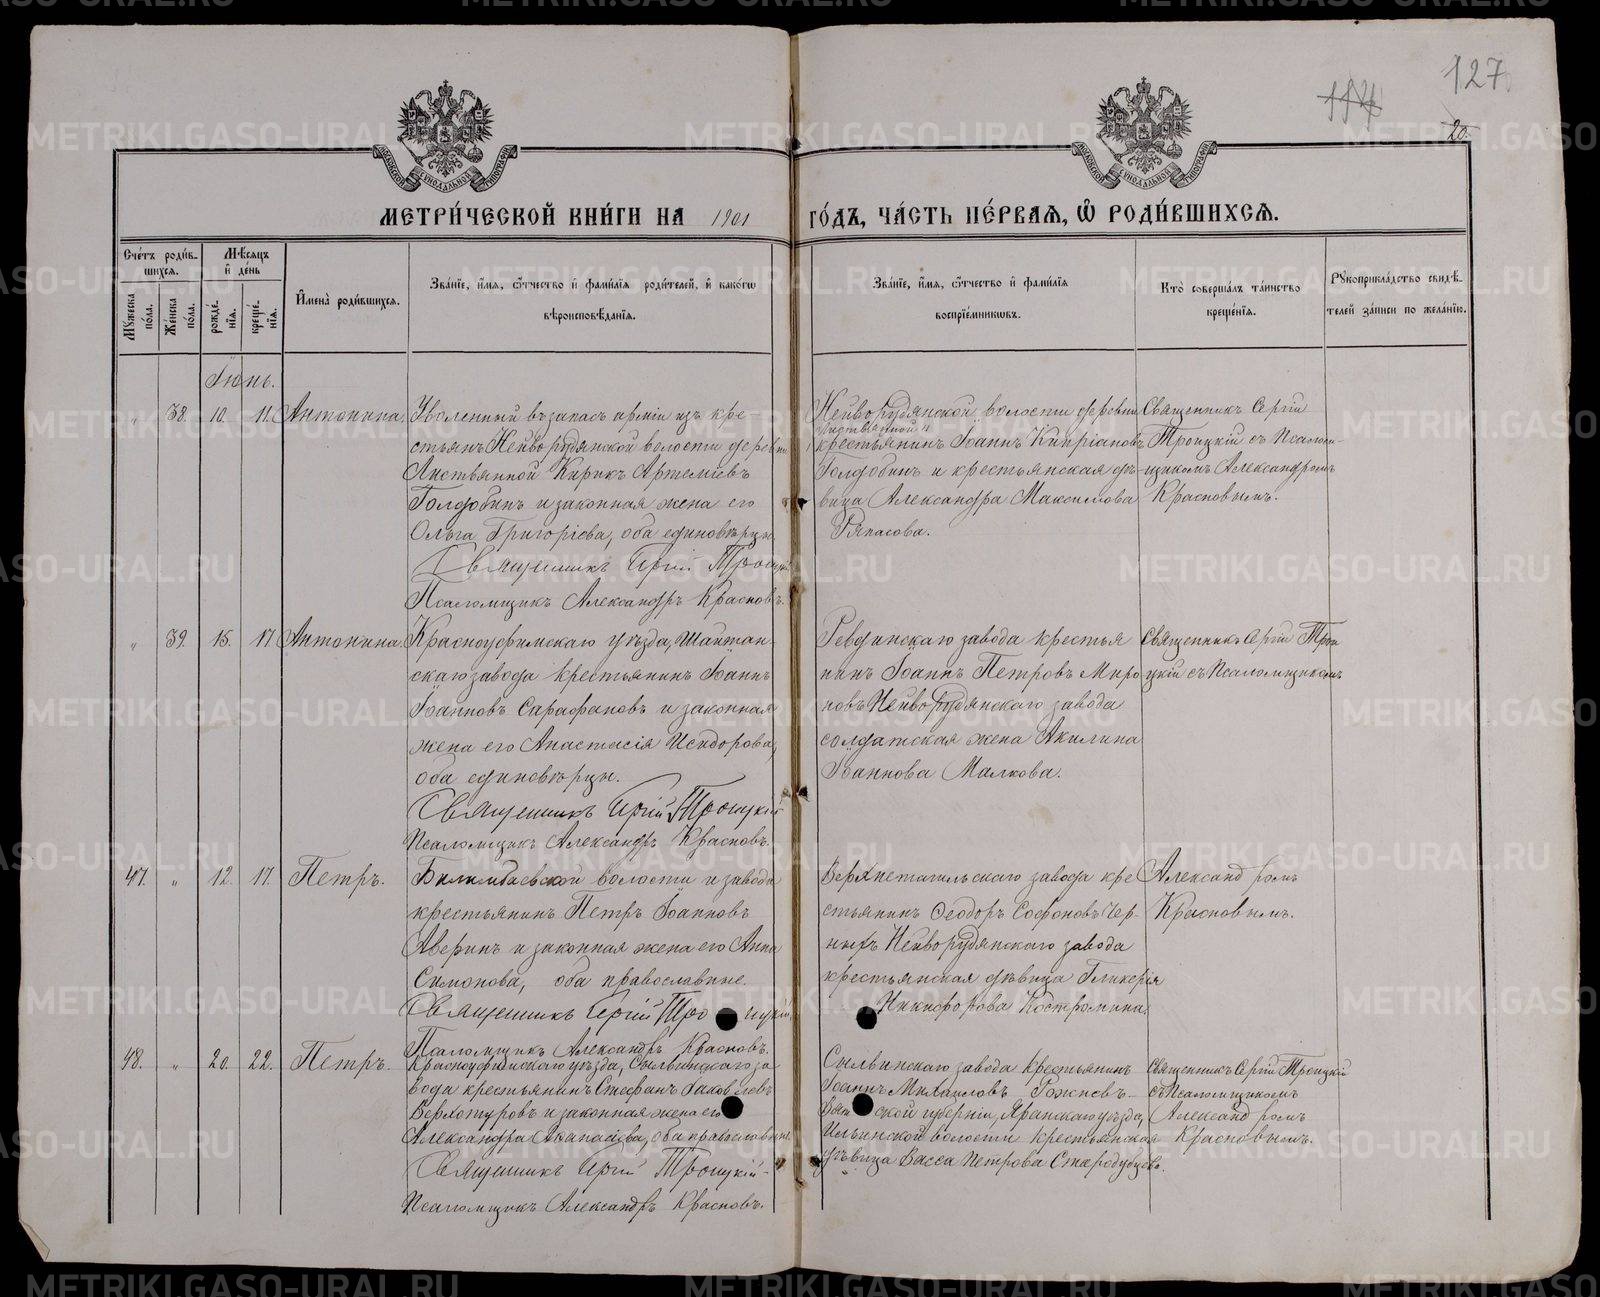 127
114
20.
МОСКОВСКОЙ СѴНОДАЛЬНОЙ ТИПОГРАФІИ
МОСКОВСКОЙ СѴНОДАЛЬНОЙ ТИПОГРАФІИ
МЕТРИ́ЧЕСКОЙ КНИ́ГИ НА 1901 ГО́ДЪ, ЧА́СТЬ ПЕ́РВАѦ, Ѿ РОДИ́ВШИХСѦ.
Сче́тъ роди́в-
шихсѧ.
Мꙋ́жеска
по́ла.
Же́нска
по́ла.
Мѣ́сѧцъ
и҆ де́нь
рожде́-
нїѧ.
креще́-
нїѧ.
И҆мена̀ роди́вшихсѧ.
Зва́нїе, и҆́мѧ, ѻ҆́тчество и҆ фами́лїѧ роди́телей, и҆ како́гѡ
вѣроисповѣ́данїѧ.
Зва́нїе, и҆́мѧ, ѻ҆́тчество и҆ фами́лїѧ
воспрїе́мникѡвъ.
Кто̀ соверша́лъ та́инство
креще́нїѧ.
Рꙋкоприкла́дство свидѣ́-
телей за́писи по жела́нїю.
Іюнь.
" 38. 10. 11. Антонина.
Уволенный въ запасъ арміи изъ кре-
стьянъ Нейворудянской волости деревни
Листвянной Кирикъ Артеміевъ
Голдобинъ и законная жена его
Ольга Григоріева, оба единовѣрцы.
Священникъ Сергій Троицкій
Псаломщикъ Александръ Красновъ.
Нейворудянской волости деревни
Листвянной
крестьянинъ Іоаннъ Кипріановъ
Голдобинъ и крестьянская дѣ-
вица Александра Максимова
Ряпасова.
Священникъ Сергій
Троицкій съ Псалом-
щикомъ Александромъ
Красновымъ.
" 39. 15. 17 Антонина.
Красноуфимскаго уѣзда, Шайтан-
скаго завода крестьянинъ Іоаннъ
Іоанновъ Сарафановъ и законная
жена его Анастасія Исидорова,
оба единовѣрцы.
Священникъ Сергій Троицкій
Псаломщикъ Александръ Красновъ.
Ревдинскаго завода крестья
нинъ Іоаннъ Петровъ Миро
новъ Нейворудянскаго завода
солдатская жена Акилина
Іоаннова Малкова.
Священникъ Сергій Трои
цкій съ Псаломщикомъ
47. " 12. 17. Петръ.
Билимбаевской волости и завода
крестьянинъ Петръ Іоанновъ
Аверинъ и законная жена его Анна
Симонова, оба православные.
Священникъ Сергій Троицкій
Псаломщикъ Александръ Красновъ.
Верхнетагильскаго завода кре
стьянинъ Ѳеодоръ Софоновъ Чер-
ныхъ Нейворудянскаго завода
крестьянская дѣвица Гликерія
Никифорова Костромина.
Александромъ
Красновымъ.
48. " 20. 22. Петръ.
Красноуфимскаго уѣзда, Сылвинскаго за
вода крестьянинъ Стефанъ Іаковлевъ
Верхотуровъ и законная жена его
Александра Аѳанасіева, оба православные.
Священникъ Сергій Троицкій
Псаломщикъ Александръ Красновъ.
Сылвинскаго завода крестьянинъ
Іоаннъ Михаиловъ Рожковъ
Вятской губерніи, Яранскаго уѣзда,
Ильинской волости крестьянская
дѣвица Васса Петрова Стародубцева.
Священникъ Сергій Троицкій
съ Псаломщикомъ
Александромъ
Красновымъ.
METRIKI.GASO-URAL.RU